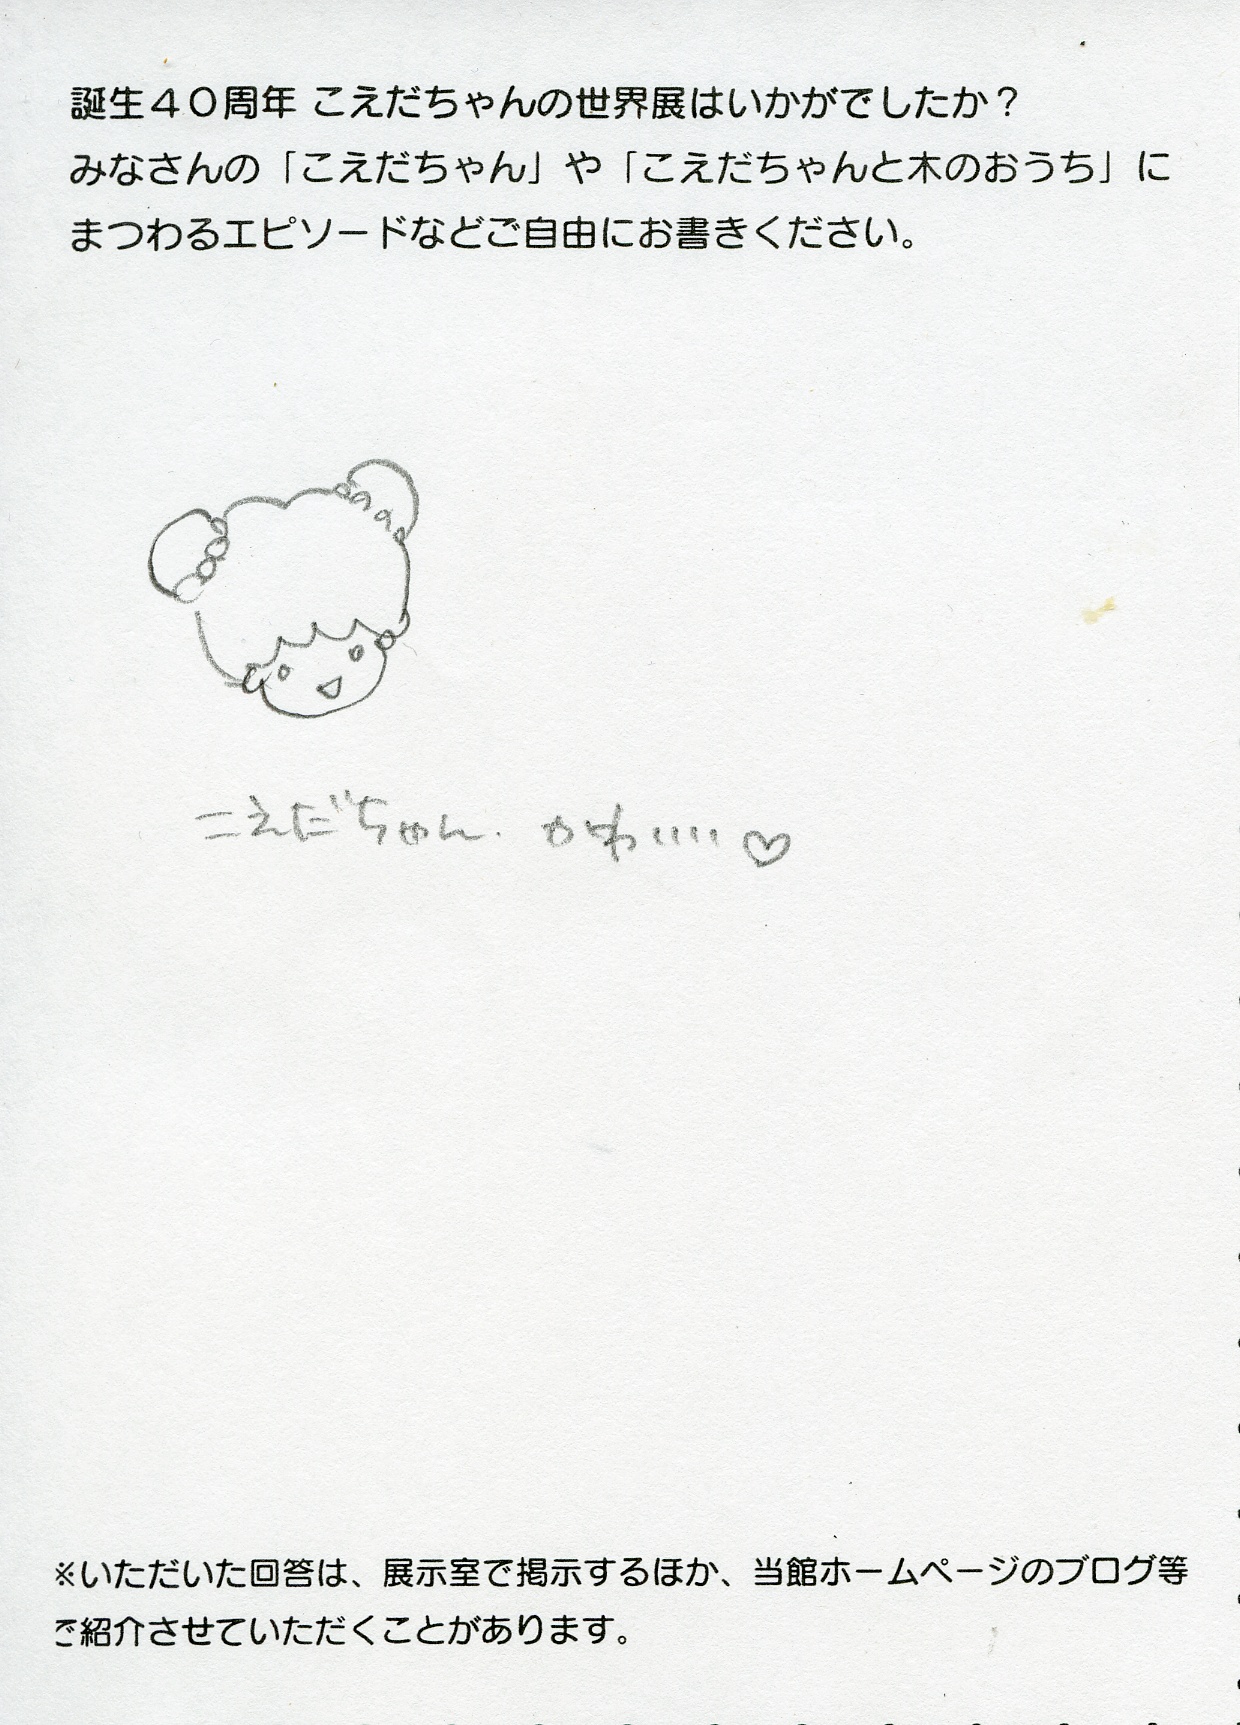 誕生４０周年 こえだちゃんの世界展はいかがでしたか？
みなさんの「こえだちゃん」や「こえだちゃんと木のおうち」に
まつわるエピソードなどご自由にお書きください。
こえだちゃん. かわいい♡
※いただいた回答は、展示室で掲示するほか、当館ホームページのブログ等
で紹介させていただくことがあります。